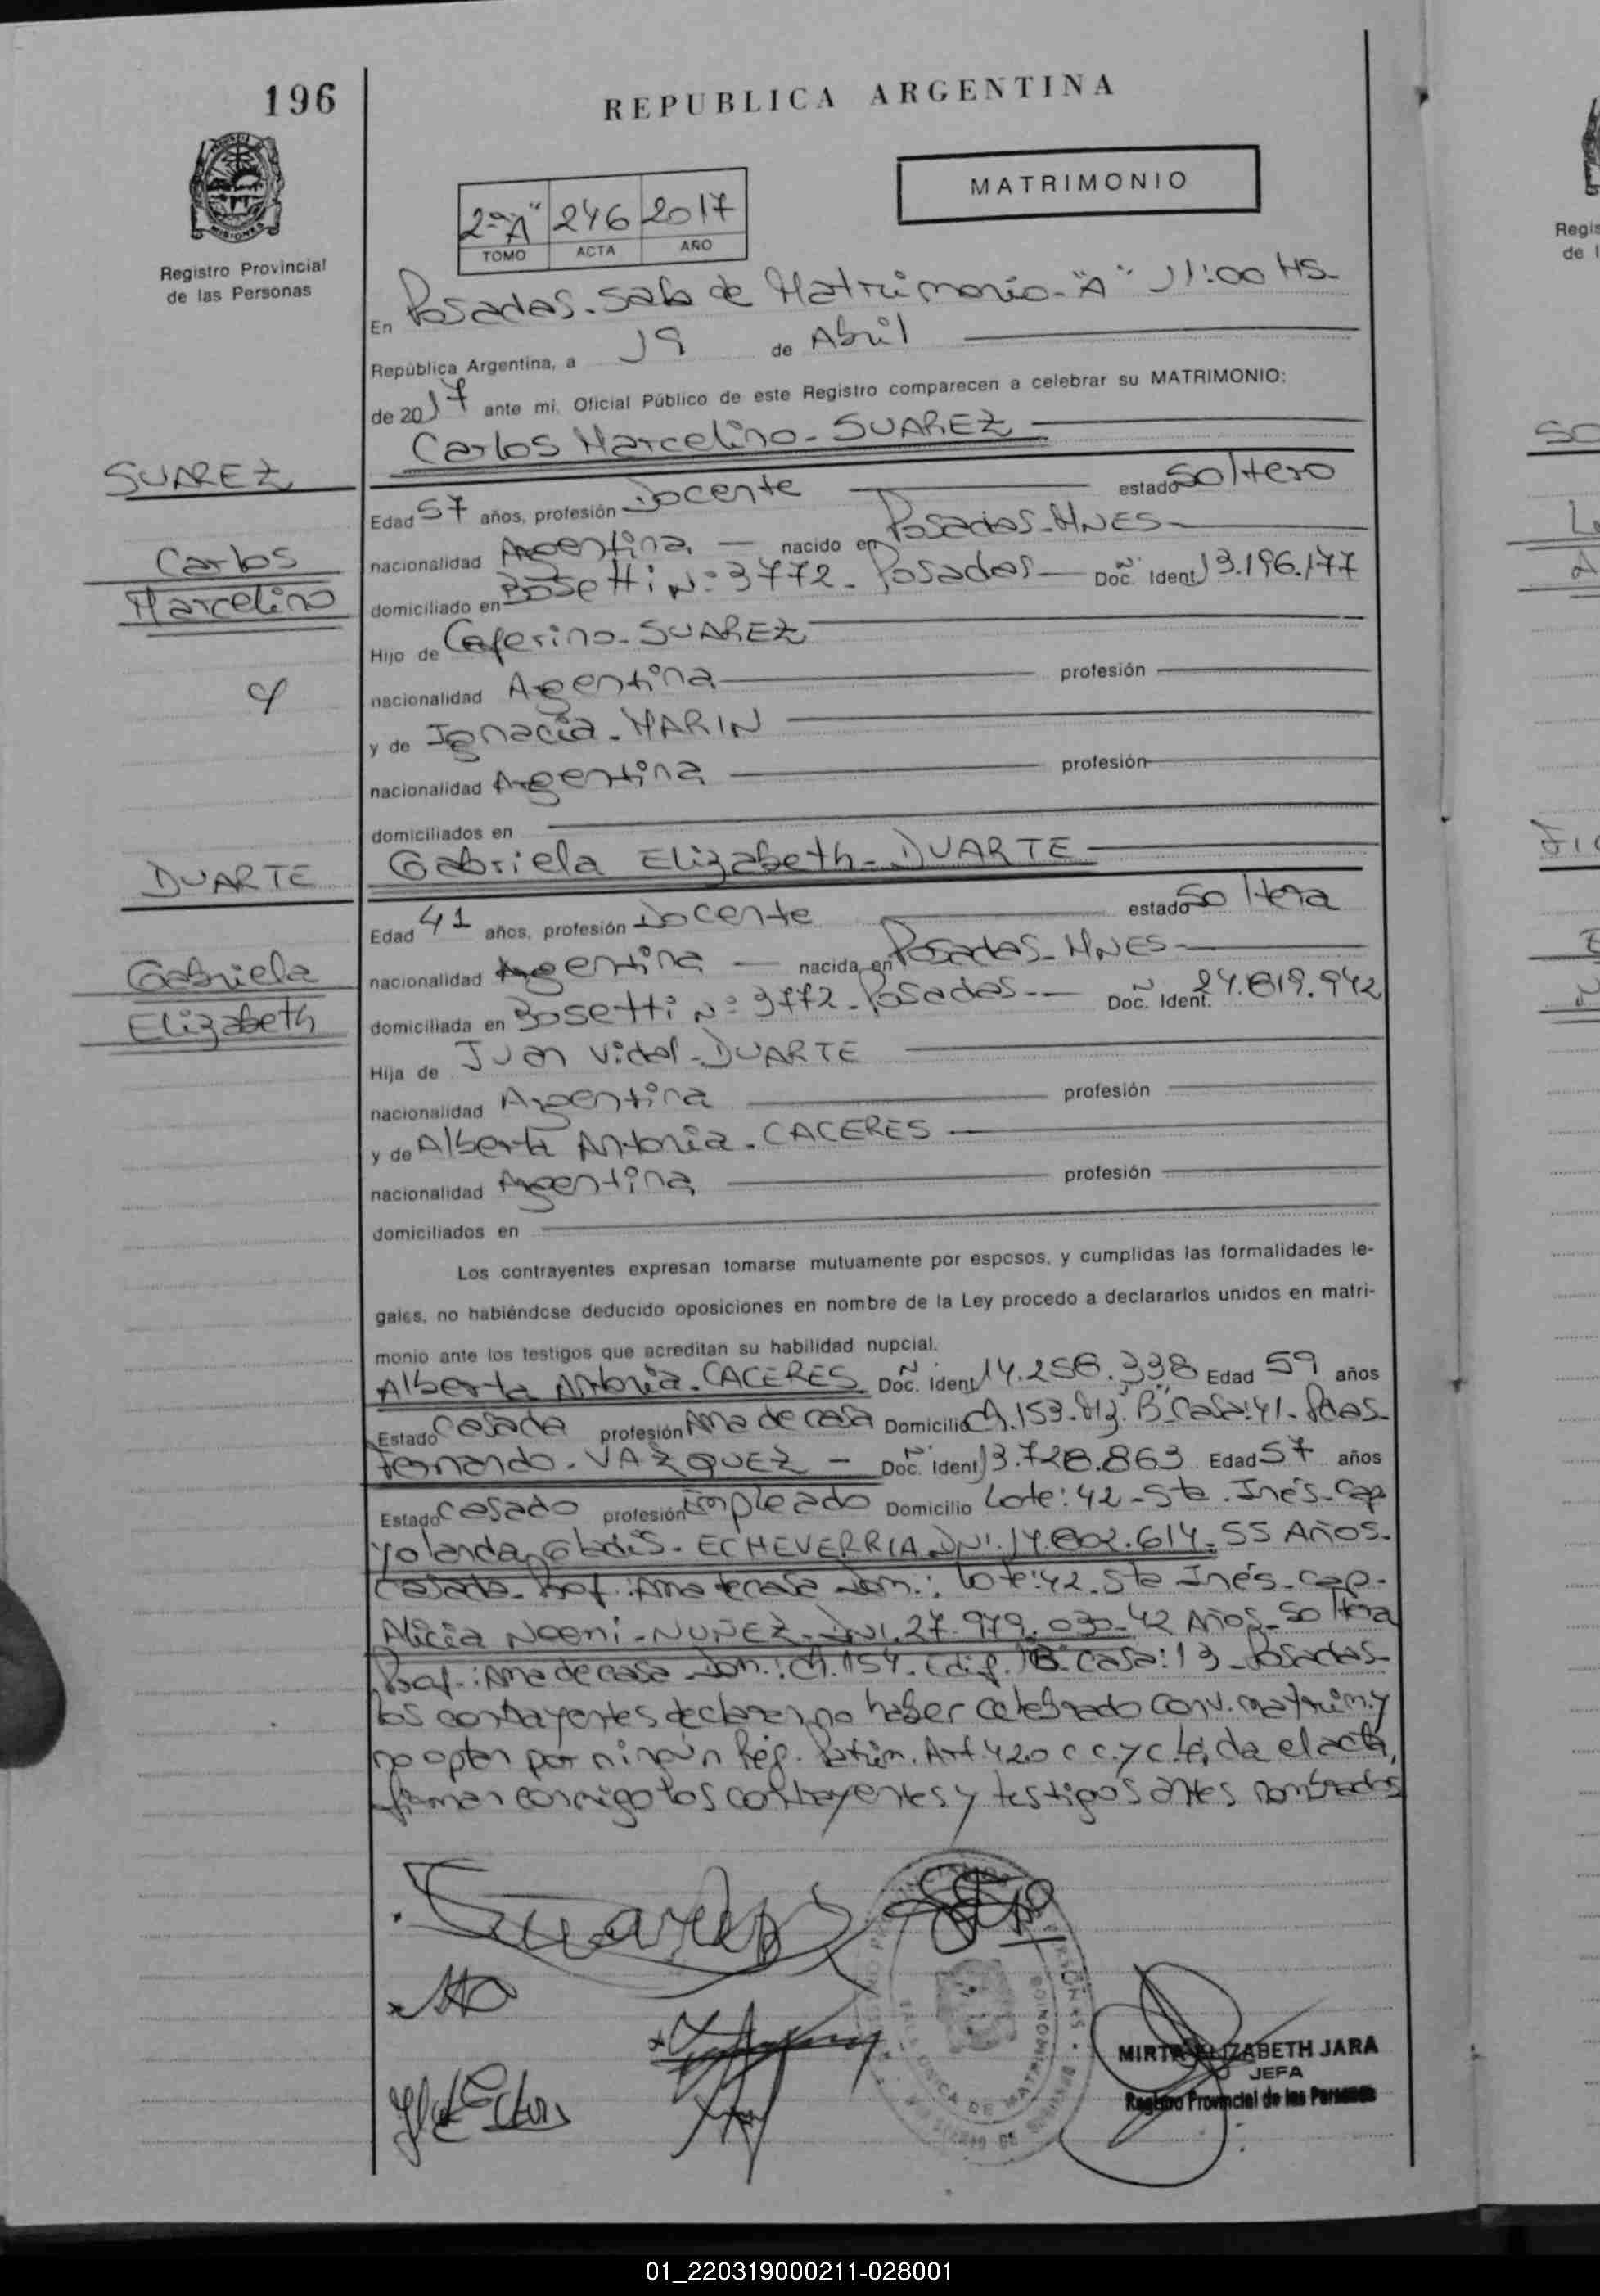 196
REPUBLICA ARGENTINA
MATRIMONIO
2º "A" 246 2017
TOMO ACTA AÑO
Registro Provincial
de las Personas
En Posadas. Sala de Matrimonio - "A" 11:00 HS-
República Argentina, a 19 de Abril
de 2017 ante mi, Oficial Público de este Registro comparecen a celebrar su MATRIMONIO:
Carlos Marcelino - SUAREZ
SUAREZ
Edad 57 años, profesión Docente estado Soltero
nacionalidad Argentina - nacido en Posadas - MNES -
Carlos
domiciliado en Bosetti Nº 3772 - Posadas - Doc. Ident. 13.196.177
Marcelino
Hijo de Ceferino - SUAREZ
nacionalidad Argentina profesión
c/
y de Ignacia - MARIN
nacionalidad Argentina profesión
domiciliados en
Gabriela Elizabeth - DUARTE
DUARTE
Edad 41 años, profesión Docente estado Soltera
nacionalidad Argentina - nacida en Posadas - MNES -
Gabriela
domiciliada en Bosetti Nº 3772 - Posadas - Doc. Ident. 24.819.942
Elizabeth
Hija de Juan Vidal - DUARTE
nacionalidad Argentina profesión
y de Alberta Antonia - CACERES
nacionalidad Argentina profesión
domiciliados en
Los contrayentes expresan tomarse mutuamente por esposos, y cumplidas las formalidades le-
gales, no habiéndose deducido oposiciones en nombre de la Ley procedo a declararlos unidos en matri-
monio ante los testigos que acreditan su habilidad nupcial.
Alberta Antonia - CACERES Doc. Ident. 14.258.338 Edad 59 años
Estado Casada profesión Ama de casa Domicilio Ch.153. Mz. "B" Casa: 41 - Pdas -
Fernando - VAZQUEZ - Doc. Ident. 13.728.863 Edad 57 años
Estado Casado profesión Empleado Domicilio Lote: 42 - Sta. Inés - Cap
Yolanda Gladis - ECHEVERRIA DNI. 14.802.614 - 55 Años -
Casada - Prof.: Ama de casa Dom.: Lote: 42 - Sta Inés - Cap -
Alicia Noemi - NUÑEZ - DNI. 27.979.030 - 42 Años - Soltera
Prof.: Ama de casa - Dom.: Ch. 154 - Edif. "B" Casa: 13 - Posadas -
los contrayentes declaran no haber celebrado conv. matrim. y
no optan por ningún Rég. Patrim. Art. 420 C C. y C. Leída el acta,
firman conmigo los contrayentes y testigos antes nombrados
MIRTA ELIZABETH JARA
JEFA
Registro Provincial de las Personas
01_220319000211-028001